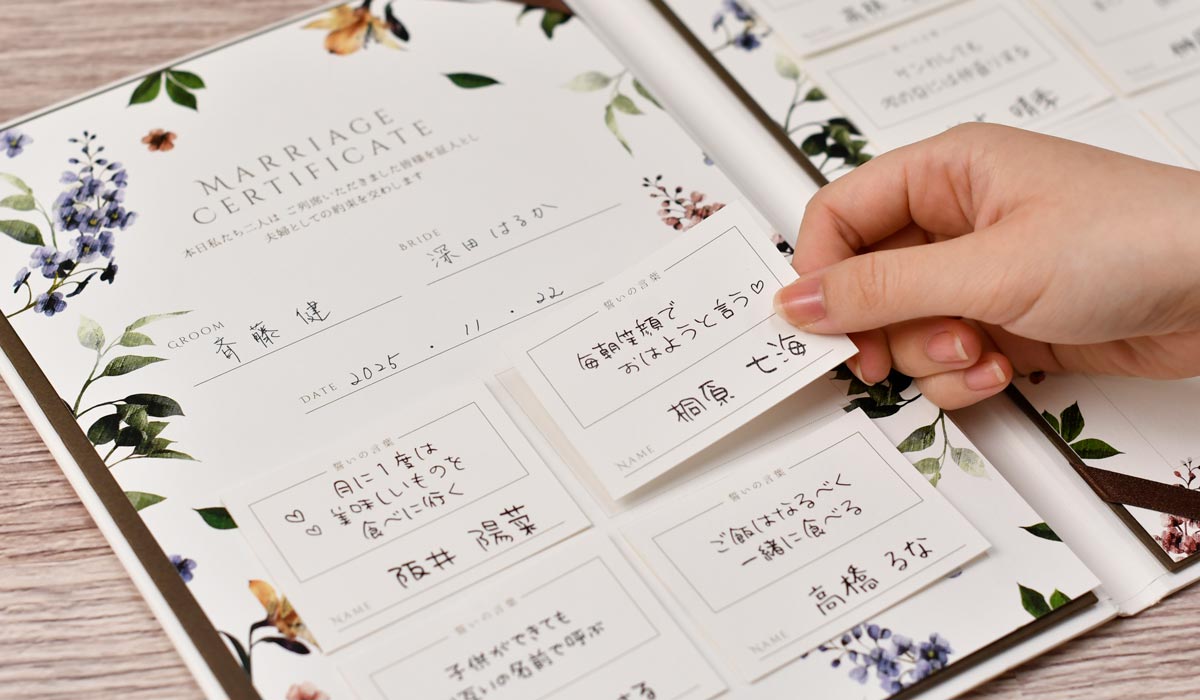 MARRIAGE
CERTIFICATE
本日私たち二人は ご列席いただきました皆様を証人とし
夫婦としての約束を交わします
GROOM
斉藤 健
BRIDE
深田 はるか
DATE 2025 . 11 . 22
誓いの言葉
毎朝笑顔で
おはようと言う♡
NAME
桐原 七海
誓いの言葉
月に1度は
美味しいものを
食べに行く
♡♡
NAME
阪井 陽菜
誓いの言葉
ご飯はなるべく
一緒に食べる
NAME
高橋 るな
誓いの言葉
子供ができても
互いの名前で呼ぶ
ケンカしても
晴歩